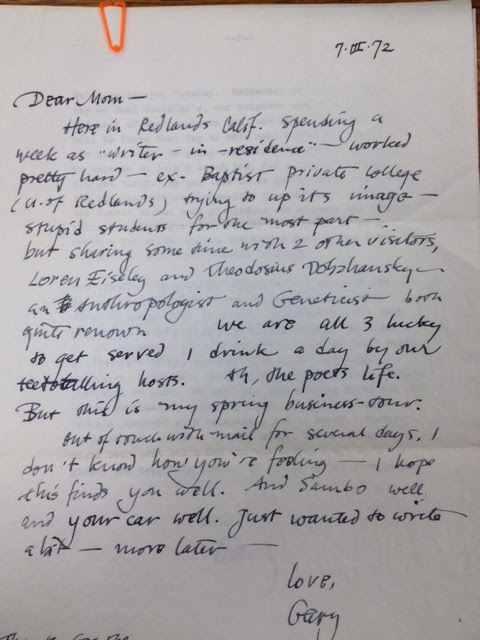 7.III.72
Dear Mom—
Here in Redlands Calif. spending a
week as "writer-in-residence" — worked
pretty hard — ex-Baptist private College
(U. of Redlands) trying to up its image —
stupid students for the most part —
but sharing some time with 2 other visitors,
Loren Eiseley and Theodosius Dobzhansky —
an Anthropologist and Geneticist both
quite renown we are all 3 lucky
to get served 1 drink a day by our
teetotalling hosts. Ah, the poets life.
But this is my spring business-tour.
Out of touch with mail for several days, I
don't know how you're feeling — I hope
this finds you well. And Sambo well
and your car well. Just wanted to write
a bit — more later —
love,
Gary